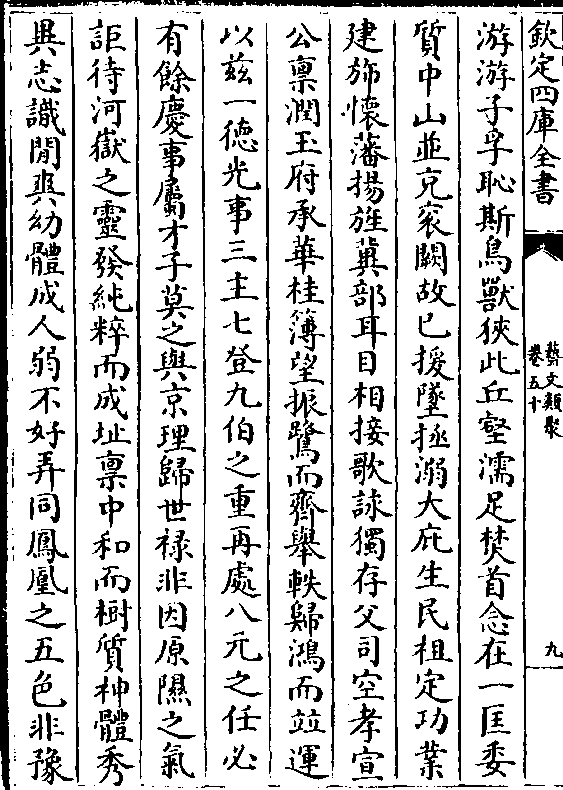 欽定四庫全書
藝文類聚
卷五十
九
游游子孚恥斯鳥獸狹此丘壑濡足焚首念在一匡委
質中山並克袞闕故已援墜拯溺大庇生民柤定功業
建斾懷藩揚旌冀部耳目相接歌詠獨存父司空孝宣
公稟潤玉府承華桂簿望振鷺而齊舉軼歸鴻而竝運
以茲一徳光事三主七登九伯之重再處八元之任必
有餘慶事屬才子莫之與京理歸世禄非因原隰之氣
詎待河嶽之靈發純粹而成址稟中和而樹質神體秀
異志識閒爽幼體成人弱不好弄同鳳凰之五色非豫